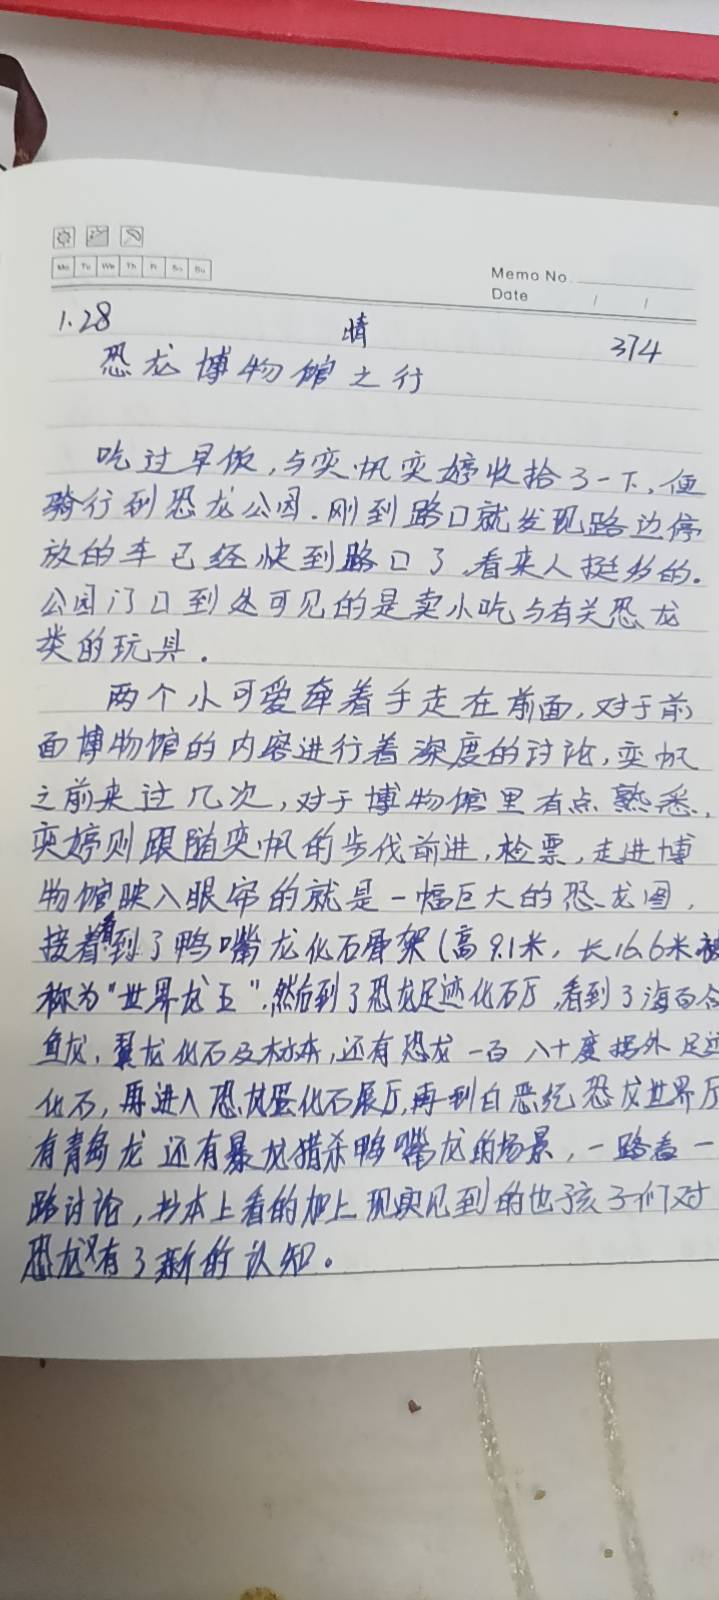 Mo Tu We Th Fr Sa Su
Memo No.
Date / /
1.28 晴 374
恐龙博物馆之行
吃过早饭,与奕帆奕婷收拾了一下,便
骑行到恐龙公园.刚到路口就发现路边停
放的车已经快到路口了,看来人挺多的.
公园门口到处可见的是卖小吃与有关恐龙
类的玩具.
两个小可爱牵着手走在前面,对于前
面博物馆的内容进行着深度的讨论,奕帆
之前来过几次,对于博物馆里有点熟悉,
奕婷则跟随奕帆的步伐前进,检票,走进博
物馆映入眼帘的就是一幅巨大的恐龙图,
接着看到了鸭嘴龙化石骨架(高9.1米,长16.6米被
称为"世界龙王",然后到了恐龙足迹化石厅,看到了海百合
鱼龙,翼龙化石及标本,还有恐龙一百八十度拐外足迹
化石,再进入恐龙蛋化石展厅,再到白恶纪恐龙世界厅
有青岛龙还有暴龙猎杀鸭嘴龙的场景,一路看一
路讨论,书本上看的加上现实见到的也孩子们对
恐龙又有了新的认知。